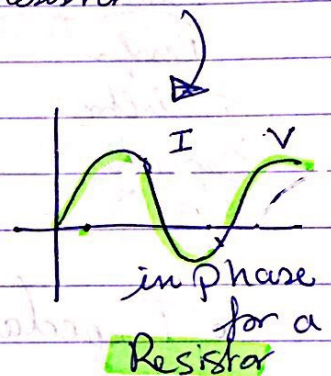 I V
in phase
for a
Resistor